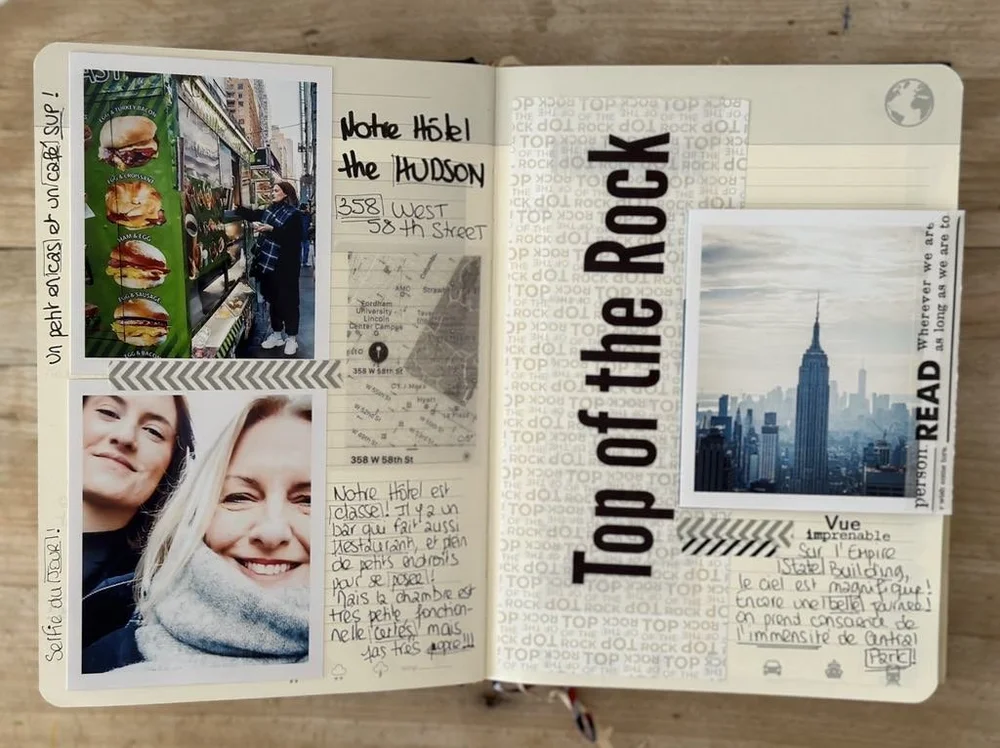 un petit encas et un café SUP !
EGG & TURKEY BACON
EGG & CROISSANT
HAM & EGG
EGG & SAUSAGE
EGG & BACON
Selfie du JOUR !
Notre Hôtel
the HUDSON
358 West
58th Street
AMC
Fordham
University
Lincoln
Center Campus
358 W 58th St
Hyatt
W 52nd St
358 W 58th St
Notre Hôtel est
classe ! Il y a un
bar qui fait aussi
restaurant, et plein
de petits endroits
pour se poser !
Mais la chambre est
très petite, fonction-
nelle certes, mais
pas très propre !!!
TOP OF THE ROCK
Top of the Rock
person READ Wherever we are
as long as we are to
Vue
imprenable
Sur l'Empire
State Building,
le ciel est magnifique !
Encore une belle journée !
on prend conscience de
l'immensité de Central
Park !